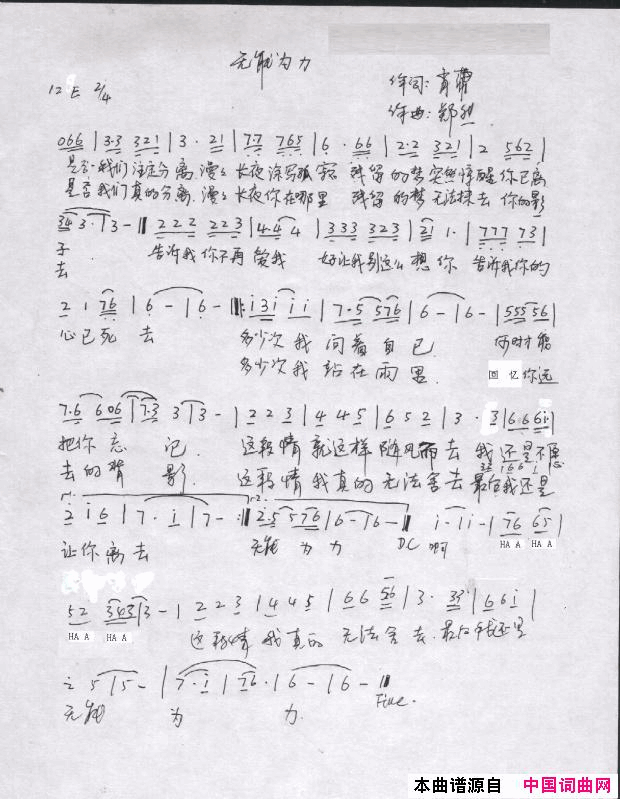 无能为力
1=E 2/4
作词:肖
作曲:郑
066 | 3·3 321 | 3 · 21 | 7·7 765 | 6 · 66 | 2·2 321 | 2 562 |
是否我们注定分离 漫漫长夜 孤寂 残留的梦突然惊醒 你已离
是否我们真的分离 漫漫长夜你在哪里 残留的梦无法抹去 你的影
34 3 · | 3 - 222 223 | 44 4 | 333 323 | 21 1 · | 777 73 |
子 告诉我你不再爱我 好让我别这么想你 告诉我你的
去
2 1 76 | 6 - | 6 - i3i ii | 7·5 576 | 6 - | 6 - | 555 56 |
心已死去 多少次我问着自己 何时才能
多少次我站在雨里 回忆你远
7·6 606 | 7·3 3 | 3 - | 2 2 3 | 4 4 5 | 6 5 2 | 3 · 3 | 6 6 6i |
把你忘记 这段情就这样随风而去 我还是不愿
去的背影 这段情我真的无法舍去 最后我还是
2 i 6 | 7 · i | 7 - 2·5 576 | 6 - | 6 - DC i - | i - | 76 65 |
让你离去 无能为力 啊 HA A HA A
52 343 | 3 - | 2 2 3 | 4 4 5 | 6 6 56 | 3 · 33 | 6 6 i |
HA A HA A 这段情我真的无法舍去 最后我还是
2 5 | 5 - | 7 · i | 76 · | 6 - | 6 -
无能为力 Fine.
本曲谱源自 中国词曲网